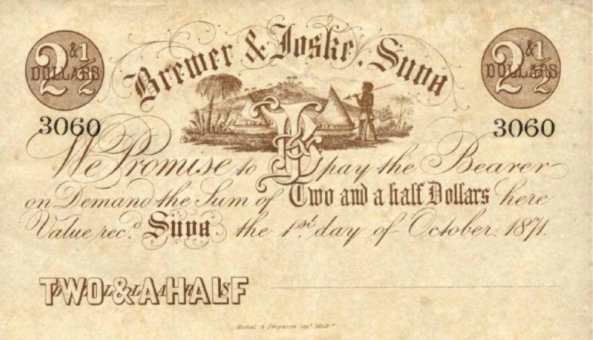 2 & 1/2 DOLLARS
Brewer & Joske, Suva
2 & 1/2 DOLLARS
3060
3060
We Promise to pay the Bearer
on Demand the Sum of Two and a half Dollars here
Value rec.d Suva the 1st. day of October. 1871.
TWO & A HALF